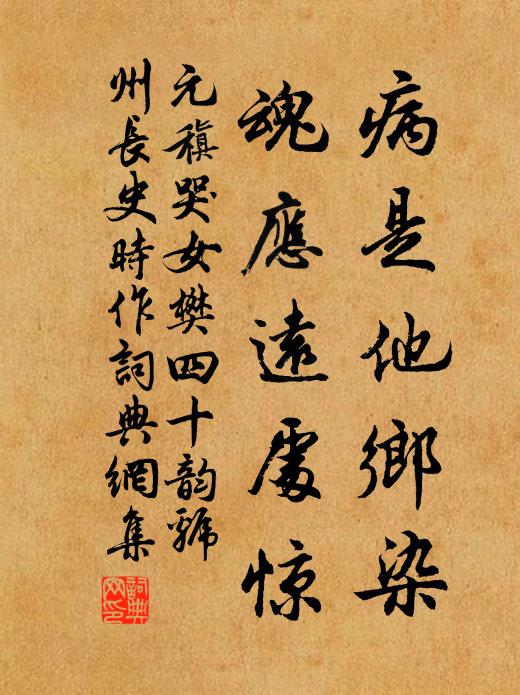 病是他鄉染
魂應遠處惊
元稹哭女樊四十韵號
州長史時作詞典網集
詞典
网印